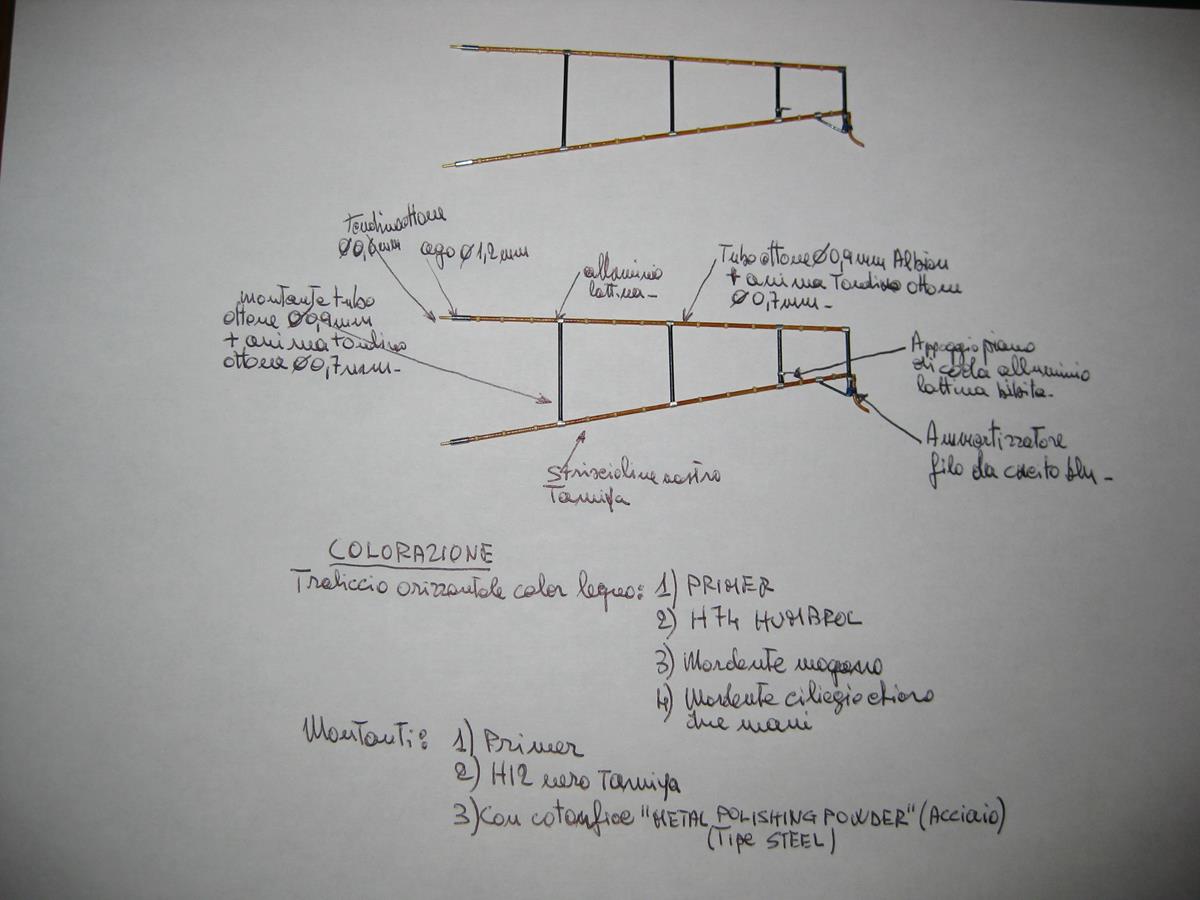 Tondino ottone
Ø0,6mm
ago Ø1,2mm
alluminio
lattina-
Tubo ottone Ø0,9mm Albion
+ anima Tondino ottone
Ø0,7mm-
montante tubo
ottone Ø0,9mm
+ anima tondino
ottone Ø0,7mm-
Appoggio piano
di coda alluminio
lattina bibita-
Ammortizzatore
filo da cucito blu-
Striscioline nastro
Tamiya
COLORAZIONE
Traliccio orizzontale color legno: 1) PRIMER
2) H74 HUMBROL
3) Mordente mogano
4) Mordente ciliegio chiaro
due mani
Montanti: 1) Primer
2) H12 nero Tamiya
3) Con cotonfioc "METAL POLISHING POWDER" (Acciaio)
(Tipe STEEL)